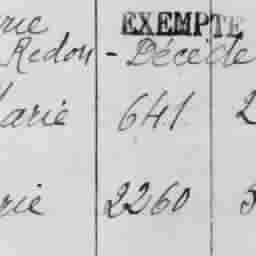 rie EXEMPTE
Redon - Décédé
Marie 641. 2
rie 2260 5